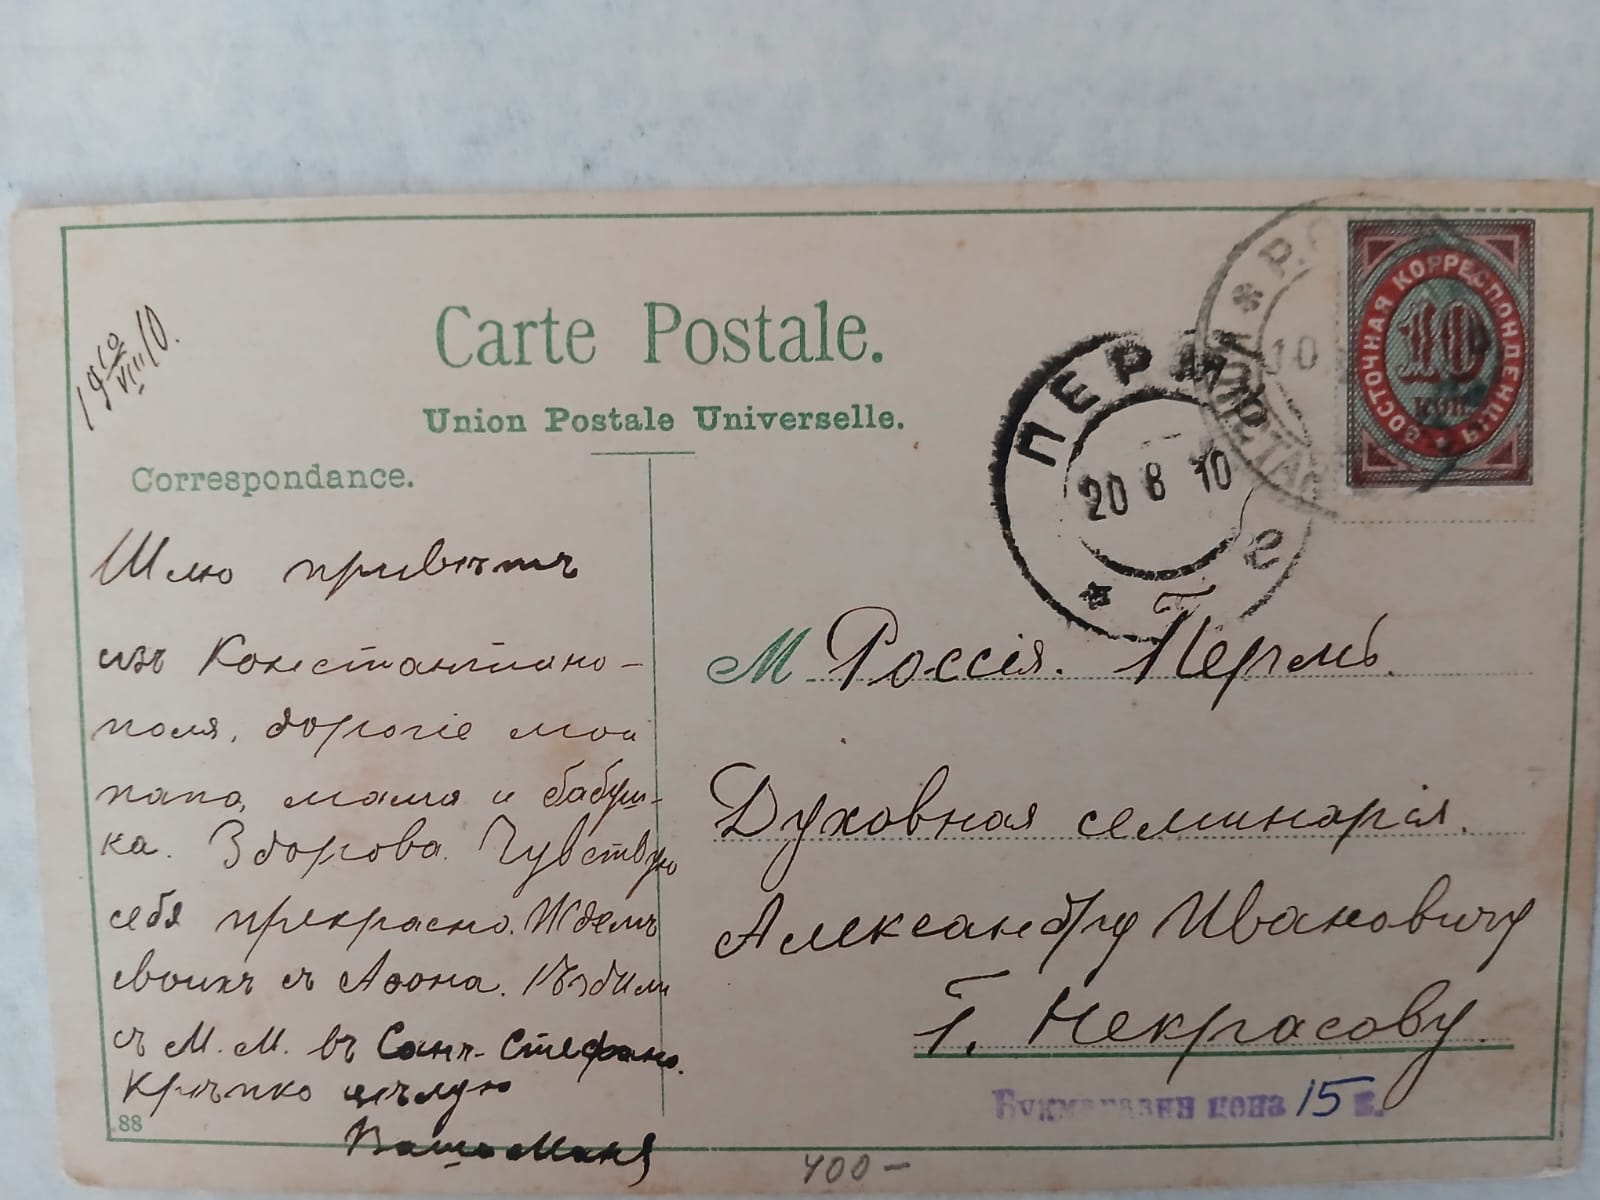 19 10/VIII 10.
Carte Postale.
Union Postale Universelle.
Correspondance.
Шлю привѣтъ
изъ Константино-
поля, дорогіе мои
папа, мама и бабуш-
ка. Здорова. Чувствую
себя прекрасно. Ждемъ
своихъ съ Афона. Ѣздили
съ М. М. въ Санъ-Стефано.
Крѣпко цѣлую
Ваша Маня
88
ВОСТОЧНАЯ КОРРЕСПОНДЕНЦІЯ
10
КОП.
Р.О.
10
ПЕРМЬ
20 8 10
2
М Россія. Г. Пермь.
Духовная семинарія.
Александру Ивановичу
Г. Некрасову.
Букмагазин цена 15 к.
400-